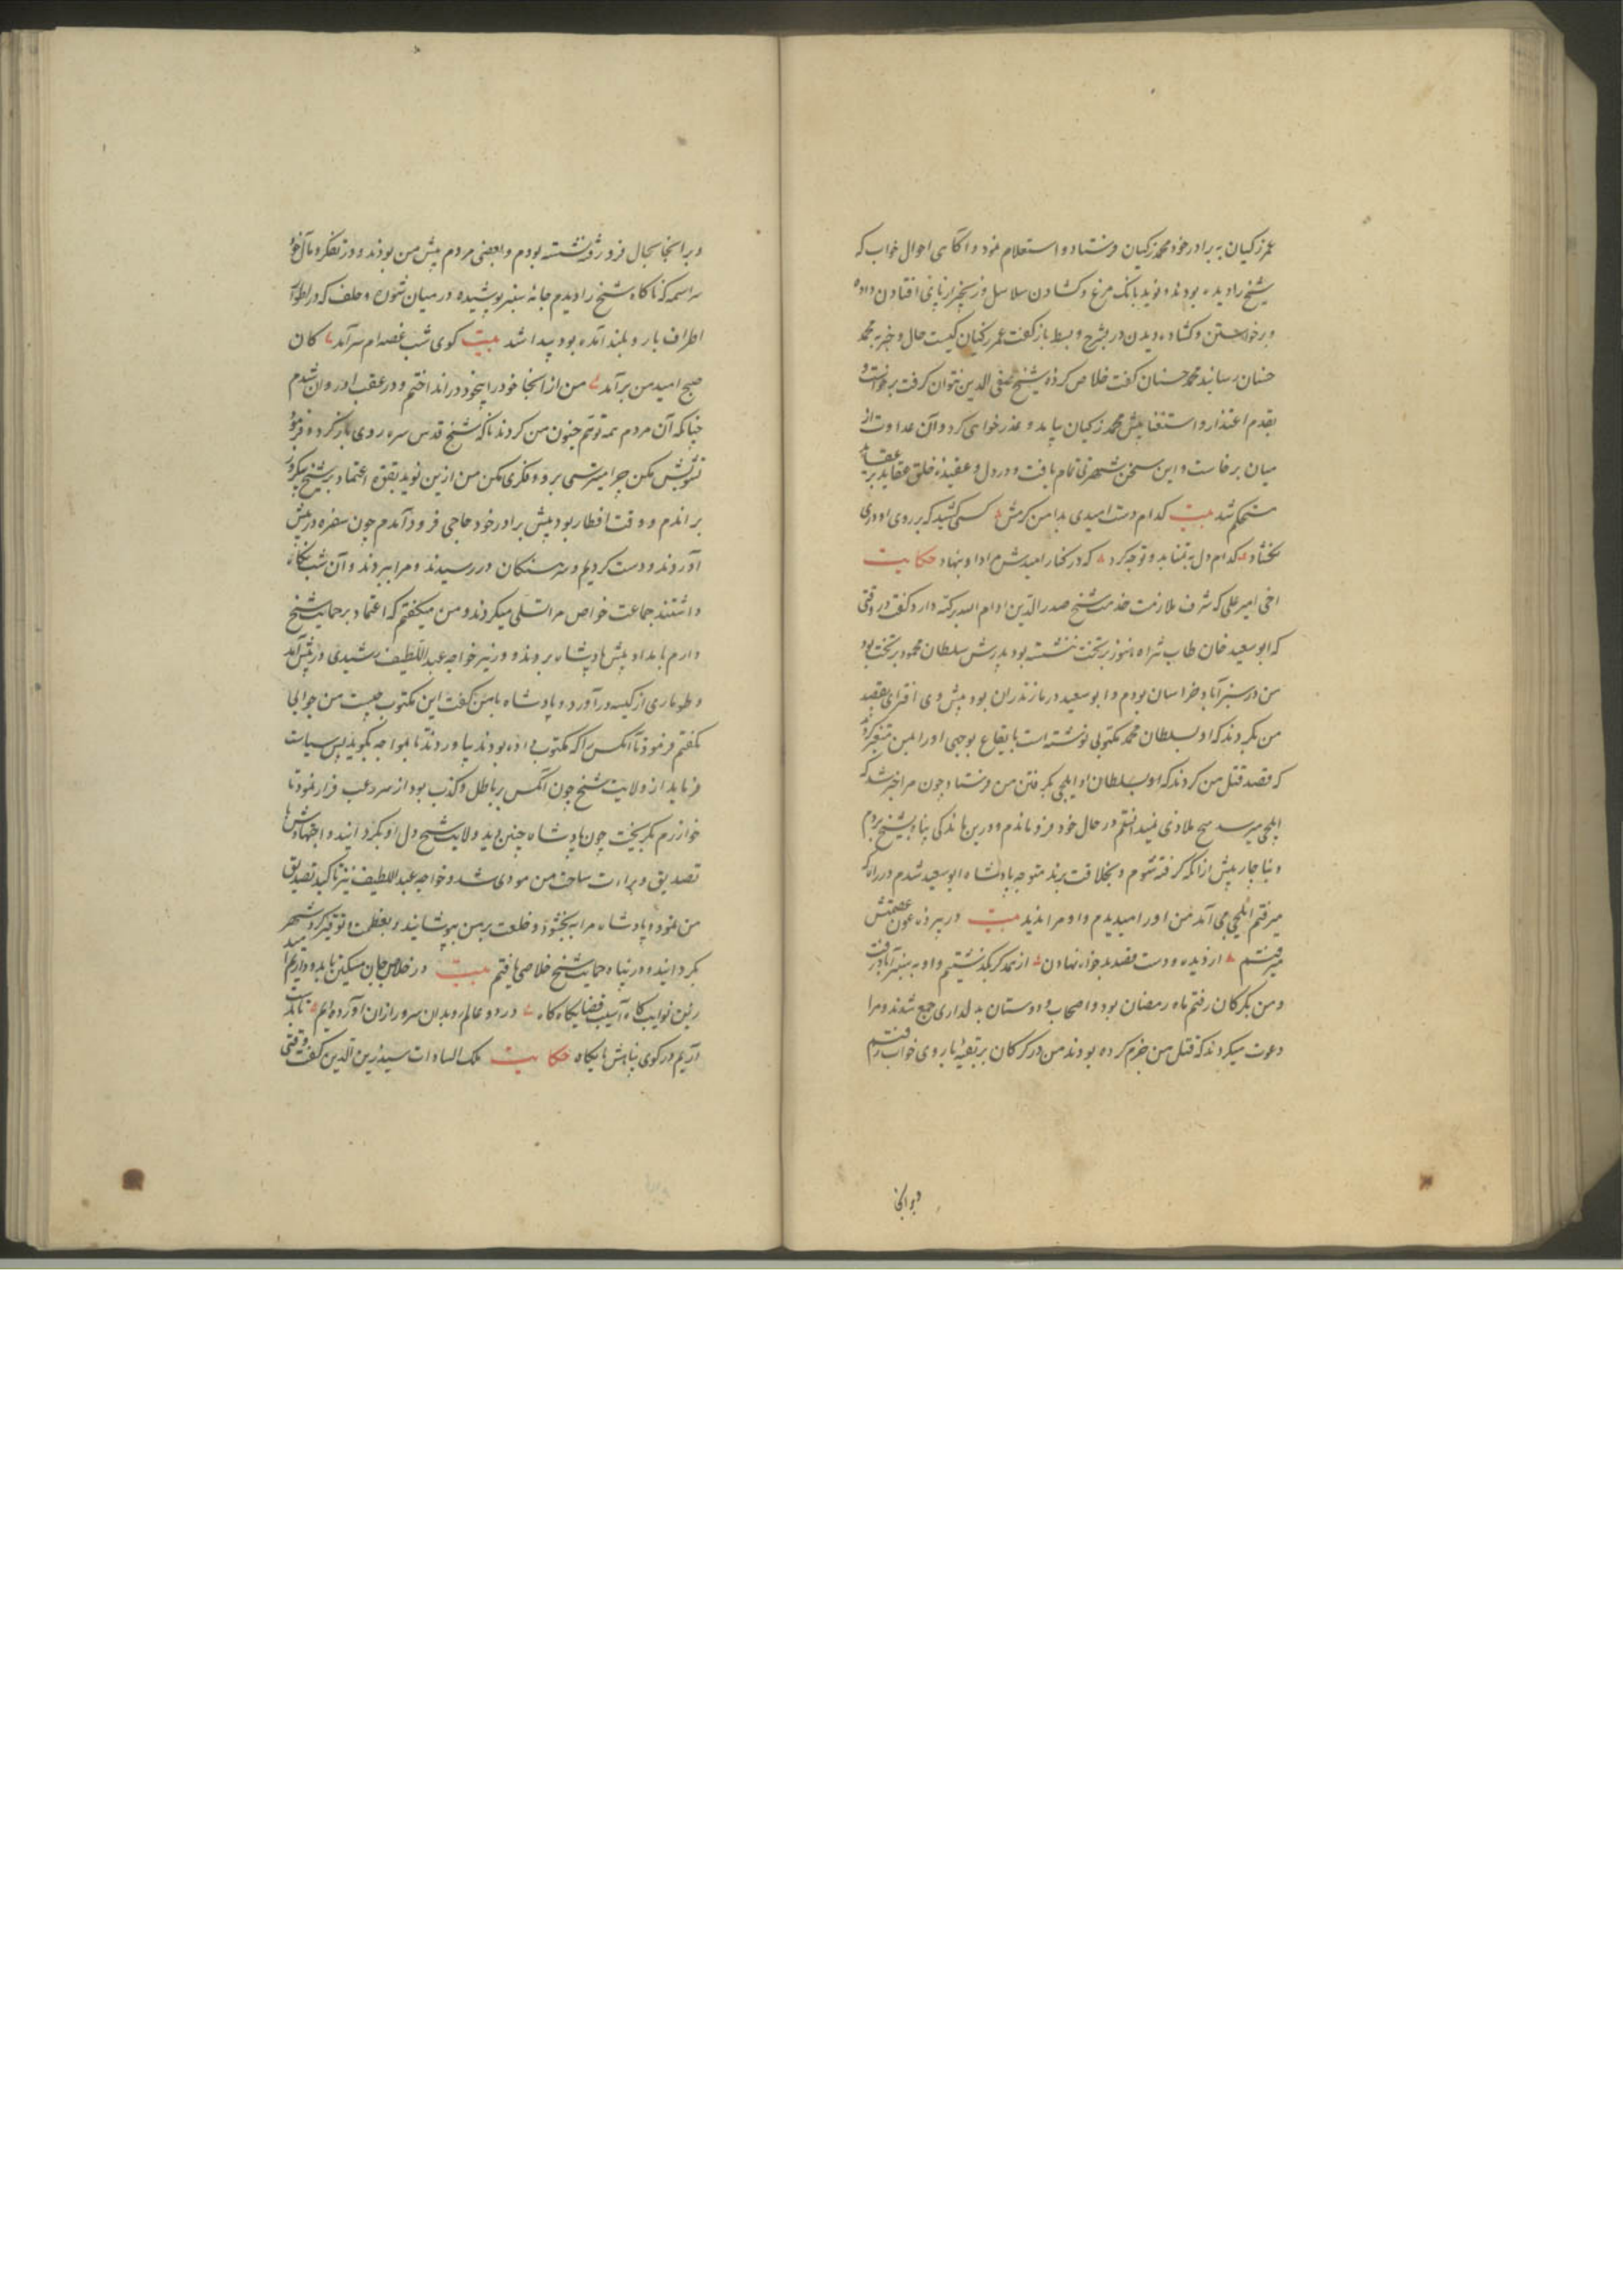 عمر زکیان به برادر خود محمد زکیان فرستاد و استعلام نمود و آگاهی احوال خواب که
شیخ را دیده بودند و نوید بانک مرغ و کشادن سلاسل و زنجیر از پای افتادن داده
و برخواستن و کشاده دیدن در بشرح و بسط باز گفت عمر زکیان کیفیت حال و خبر به محمد
حسنان رسانید محمد حسنان گفت خلاص کرده شیخ صفی الدین نتوان گرفت برخواست و
بقدم اعتذار و استغفار پیش محمد زکیان بیامد و عذرخواهی کرد و آن عداوت از
میان برخاست و این سخن شهرتی تمام یافت و در دل و عقیده خلق عقاید بر
مستحکم شد بیت کدام دست امیدی بدامن کرمش کسی کشید که بر روی او دری
نکشاد کدام دل به تمنا بدو توجه کرد که در کنار امیدش مراد او ننهاد حکایت
اخی امیر علی که شرف ملازمت خدمت شیخ صدر الدین ادام الله برکته دارد گفت در وقتی
که ابوسعید خان طاب ثراه هنوز بر تخت ننشسته بود پدرش سلطان محمود بر تخت بود
من در سبزآباد خراسان بودم و ابوسعید در مازندران بود پیش وی افترای بقصد
من بکردند که او بسلطان محمد مکتوبی نوشته است بایقاع بوجهی او را بمن متغیر کردند
که قصد قتل من کردند که او بسلطان او ایلچی بگرفتن من فرستاد چون مرا خبر شد که
ایلچی میرسد هیچ ملاذی نمیدانستم در حال خود فرو ماندم و درین ماندگی پناه بشیخ بردم
و بناچار پیش از آنکه گرفته شوم و بخلاقت برند متوجه پادشاه ابوسعید شدم در راه که
میرفتم ایلچی می آمد من او را میدیدم و او مرا ندید بیت در پرده عون عصمتش
میرفتم از دیده و دست قصد بدخواه نهادن از همدگر بگذشتیم و او به سبزآباد رفت
و من بگرکان رفتم ماه رمضان بود و اصحاب و دوستان بدلداری جمع شدند و مرا
دعوت میکردند که قتل من جزم کرده بودند من در گرکان بر تقیه با روی خواب رفتم
و بر آنجا
و بر آنجا بحال فرو رفته نشسته بودم و بعضی مردم پیش من بودند و در تفکر و مآل خود
سراسمه که ناکاه شیخ را دیدم جامه سفید پوشیده در میان ستون و خلف که در لطوآ
اطراف بار و بلند آمده بود پیدا شد بیت کوی شب غصه ام سرآمد کان
صبح امید من برآمد من از آنجا خود را بیخود در انداختم و در عقب او روان شدم
چنانکه آن مردم همه توهم جنون من کردند ناکه شیخ قدس سره روی باز کرده فرمود
تشویش مکن چرا میترسی برو و فکری مکن من ازین نوید بقوة اعتماد بر شیخ
براندم و وقت افطار بود پیش برادر خود حاجی فرود آمدم چون سفره در پیش
آوردند و دست کردیم و سرهنگان در رسیدند و مرا ببردند و آن شب نگاه
داشتند جماعت خواص مرا تسلی میکردند و من میگفتم که اعتماد بر حمایت شیخ
دارم بامداد پیش پادشاه بردند و وزیر خواجه عبد اللطیف رشیدی در پیش آمد
و طوماری از کیسه درآورد و پادشاه با من گفت این مکتوب چیست من جوابها
بگفتم فرمود تا آنکس را که مکتوب داده بودند بیاوردند تا بمواجه بگوید پس سیاست
فرماید از ولایت شیخ چون آنکس بر باطل و کذب بود از سر رعب فرار نمود تا
خوارزم بگریخت چون پادشاه چنین دید ولایت شیخ دل او بگردانید و اجتهادش با
تصدیق و براءت ساحت من مودی شد و خواجه عبد اللطیف نیز تاکید تصدیق
من نمود پادشاه مرا ببخشود و خلعت بر من پوشانید و بعظمت و توقیر کرد شهر
بگردانید و در پناه حمایت شیخ خلاصی یافتم بیت در خلاص جان مسکین باید و داریم امید
زین نوایب گاه آسیب قضا یکاه گاه در دو عالم رو بدان سرور ازان آورده ایم تا پناه
آریم در کوی پناهش پایگاه حکایت ملک السادات سید زین الدین گفت وقتی